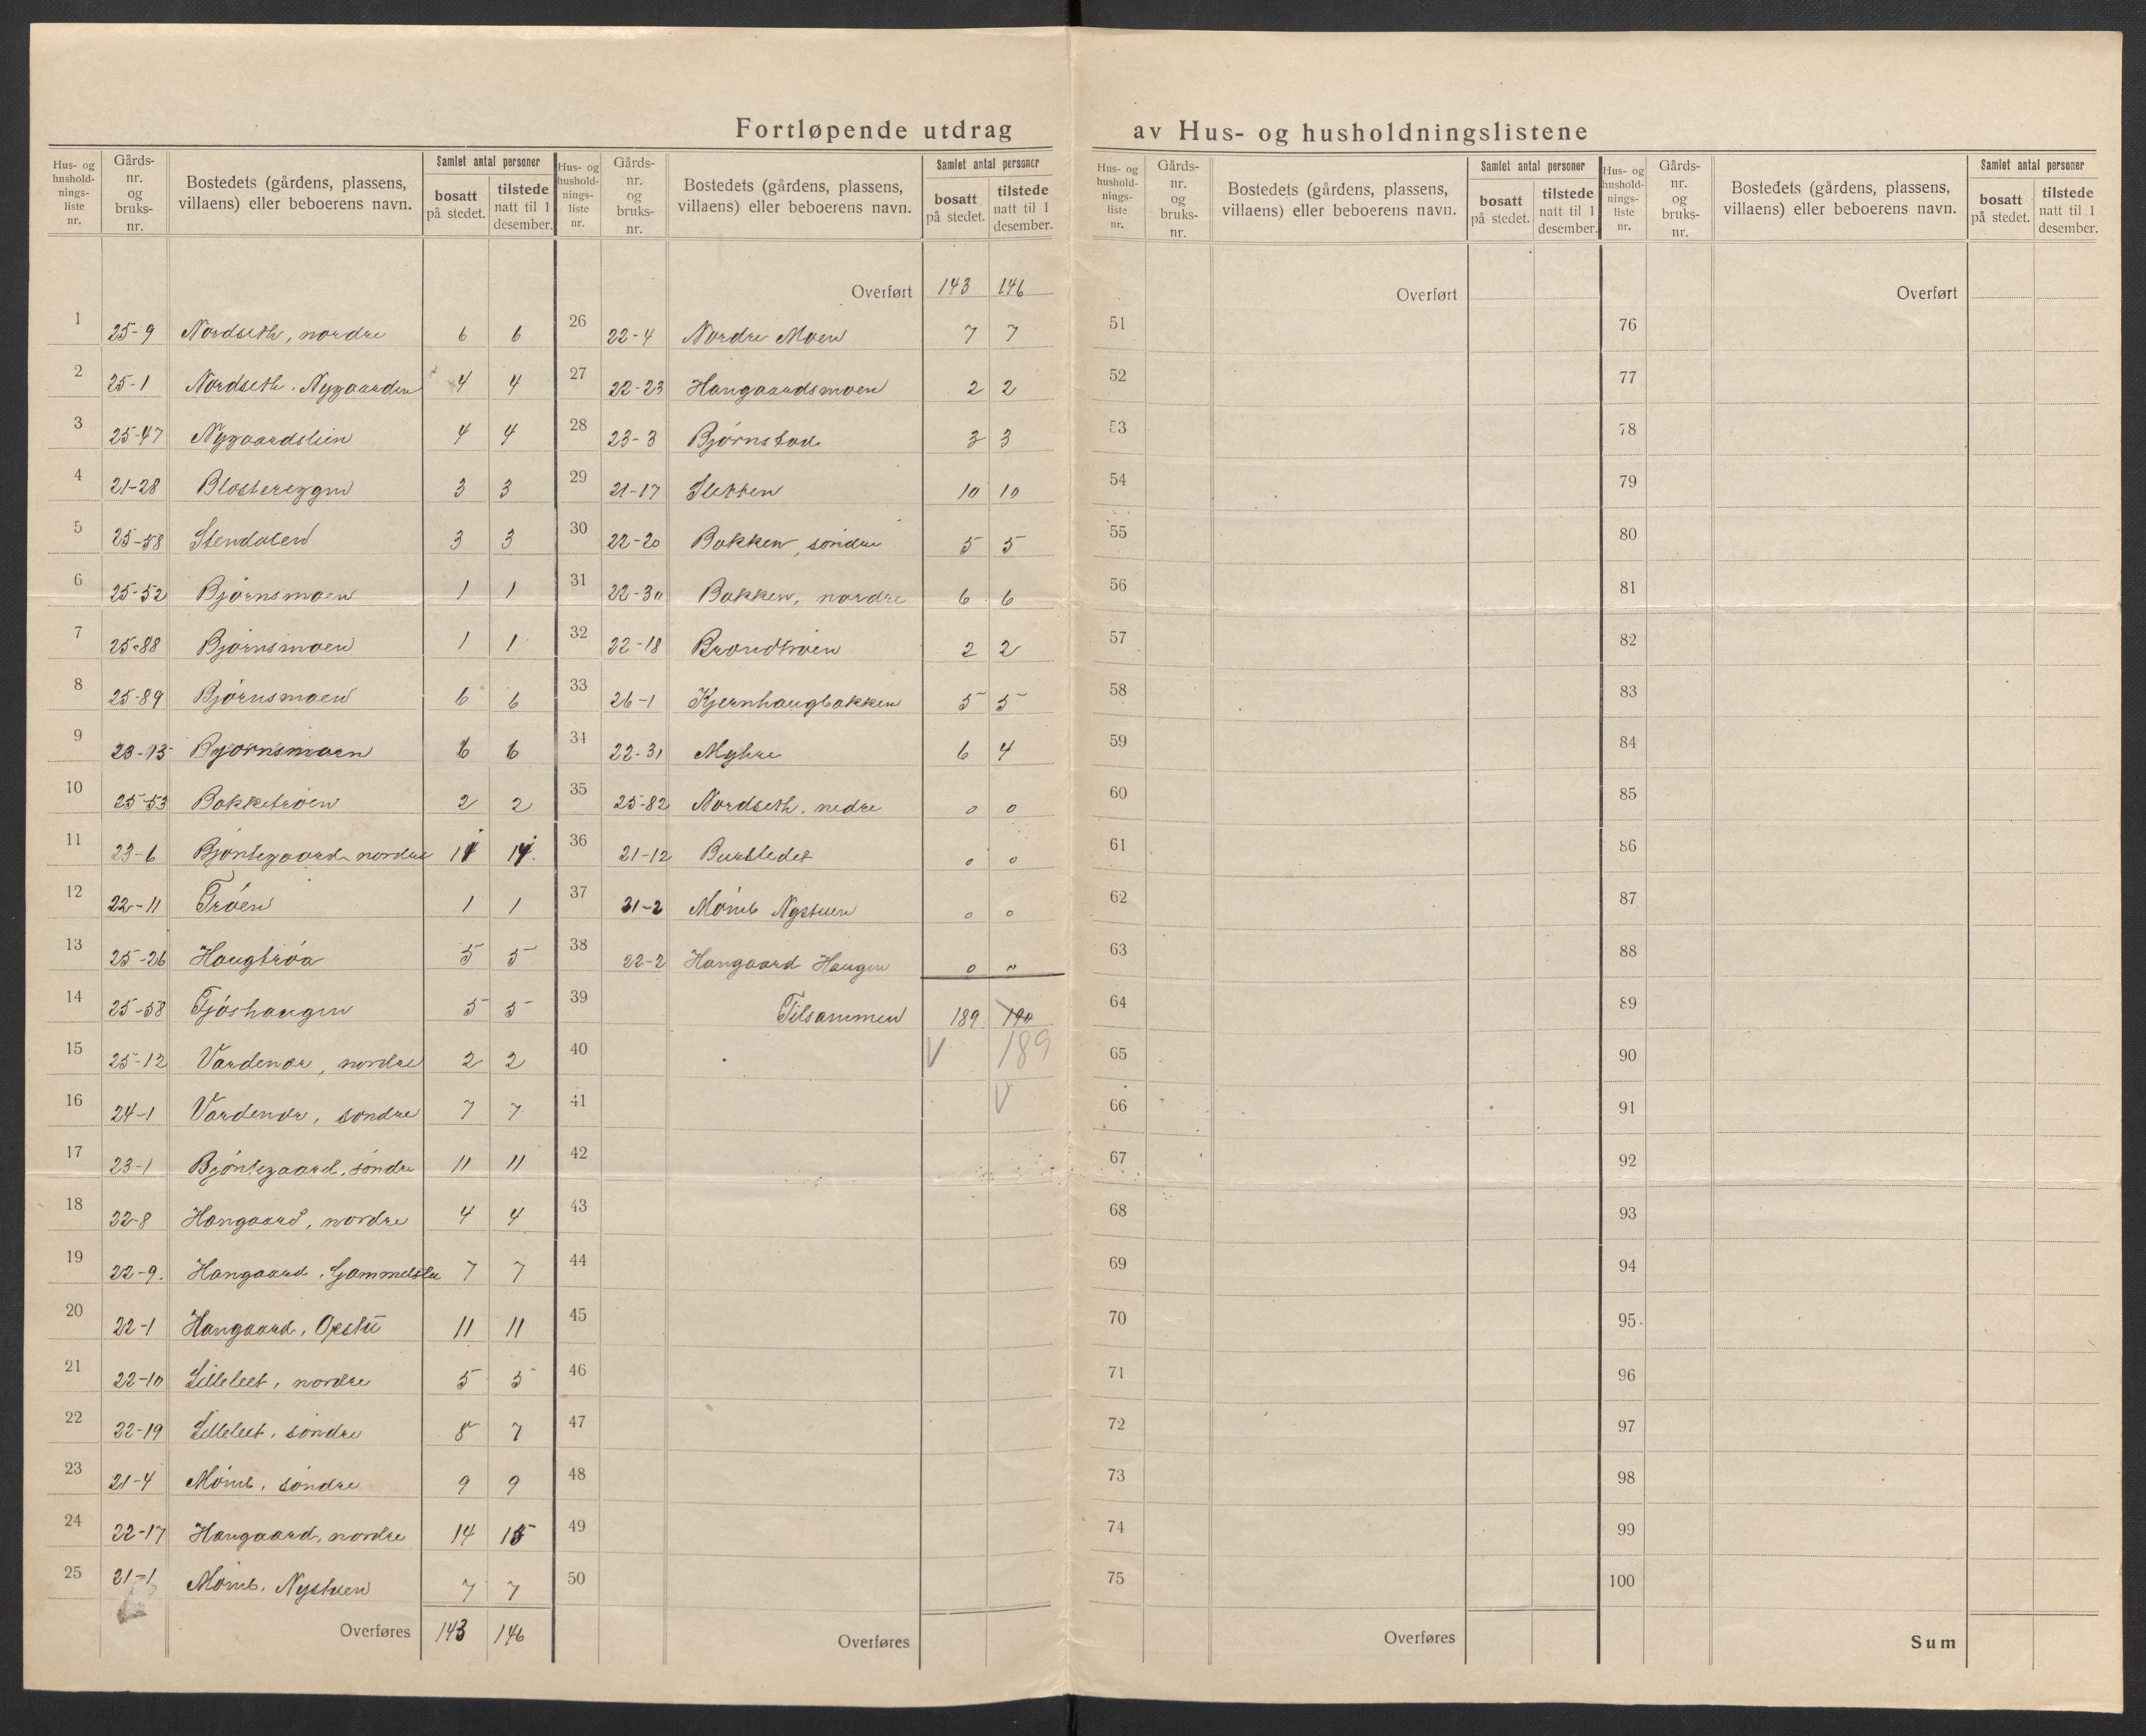 Fortløpende utdrag av Hus- og husholdningslistene
Hus- og husholdnings-liste nr. | Gårds-nr. og bruks-nr. | Bostedets (gårdens, plassens, villaens) eller beboerens navn. | Samlet antal personer bosatt på stedet. | tilstede natt til 1 desember.
1 25-9 Nordseth, nordre 6 6
2 25-1 Nordseth. Nygaarden 4 4
3 25-47 Nygaardslien 4 4
4 21-28 3 3
5 25-58 Stendalen 3 3
6 25-52 Bjørnsmoen 1 1
7 25-88 Bjørnsmoen 1 1
8 25-89 Bjørnsmoen 6 6
9 23-13 Bjørnsmoen 6 6
10 25-53 Bakketrøen 2 2
11 23-6 Bjøntegaard nordre 14
12 22-11 Trøen 1 1
13 25-26 Haugtrøa 5 5
14 25-58 Fjøshaugen 5 5
15 25-12 Vardenær, nordre 2 2
16 24-1 Vardenær, søndre 7 7
17 23-1 Bjøntegaard, søndre 11 11
18 22-8 Hangaard, nordre 4 4
19 22-9. Hangaard, Gammelstu 7 7
20 22-1 Hangaard, Opstu 11 11
21 22-10 Lilleleet, nordre 5 5
22 22-19 Lilleleet, søndre 8 7
23 21-4 Mømb, søndre 9 9
24 22-17 Hangaard, nordre 14 15
25 21-1 Mømb, Nystuen 7 7
Overføres 143 146
Hus- og husholdnings-liste nr. | Gårds-nr. og bruks-nr. | Bostedets (gårdens, plassens, villaens) eller beboerens navn. | Samlet antal personer bosatt på stedet. | tilstede natt til 1 desember.
Overført 143 146
26 22-4 Nordre Moen 7 7
27 22-23 Hangaardsmoen 2 2
28 23-3 Bjørnstad 3 3
29 21-17 Sletten 10 10
30 22-20 Bakken, søndre 5 5
31 22-30 Bakken, nordre 6 6
32 22-18 Brandtrøen 2 2
33 26-1 Kjernhaugbakken 5 5
34 22-31 Myhre 6 4
35 25-82 Nordseth, nedre 0 0
36 21-12 Bursledet 0 0
37 21-2 Mømb Nystuen 0 0
38 22-2 Hangaard Haugen 0 "
39 Tilsammen 189 190
40 189
41
42
43
44
45
46
47
48
49
50
Overføres
Hus- og husholdnings-liste nr. | Gårds-nr. og bruks-nr. | Bostedets (gårdens, plassens, villaens) eller beboerens navn. | Samlet antal personer bosatt på stedet. | tilstede natt til 1 desember.
Overført
51
52
53
54
55
56
57
58
59
60
61
62
63
64
65
66
67
68
69
70
71
72
73
74
75
Overføres
Hus- og husholdnings-liste nr. | Gårds-nr. og bruks-nr. | Bostedets (gårdens, plassens, villaens) eller beboerens navn. | Samlet antal personer bosatt på stedet. | tilstede natt til 1 desember.
Overført
76
77
78
79
80
81
82
83
84
85
86
87
88
89
90
91
92
93
94
95
96
97
98
99
100
Sum